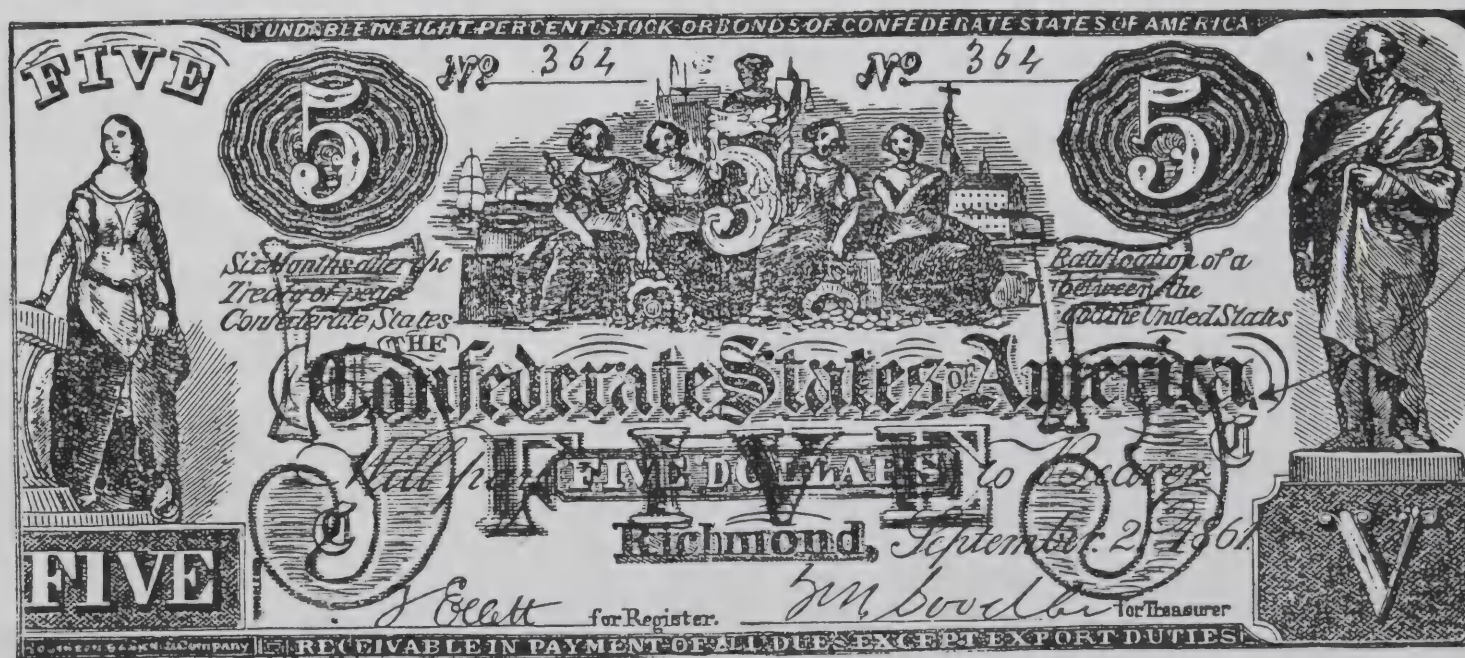 FUNDABLE IN EIGHT PERCENT STOCK OR BONDS OF CONFEDERATE STATES OF AMERICA
FIVE
5
No 364
No 364
5
Six Months after the
Ratification of a
Treaty of peace
between the
Confederate States
and the United States
THE
Confederate States OF America
Will pay FIVE DOLLARS to Bearer
FIVE
Richmond, September 2, 1861
FIVE
V
J Ellett for Register.
for Treasurer
Company
RECEIVABLE IN PAYMENT OF ALL DUES EXCEPT EXPORT DUTIES